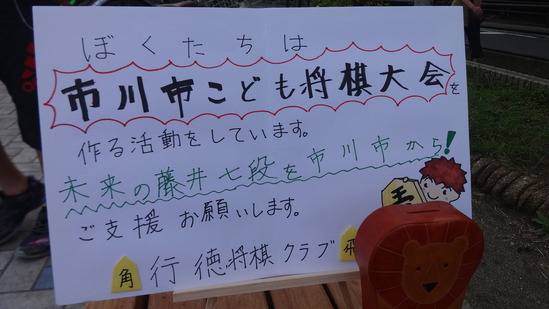 ぼくたちは
市川市こども将棋大会を
作る活動をしています。
未来の藤井七段を市川市から!
ご支援お願いします。
角 行徳将棋クラブ 飛